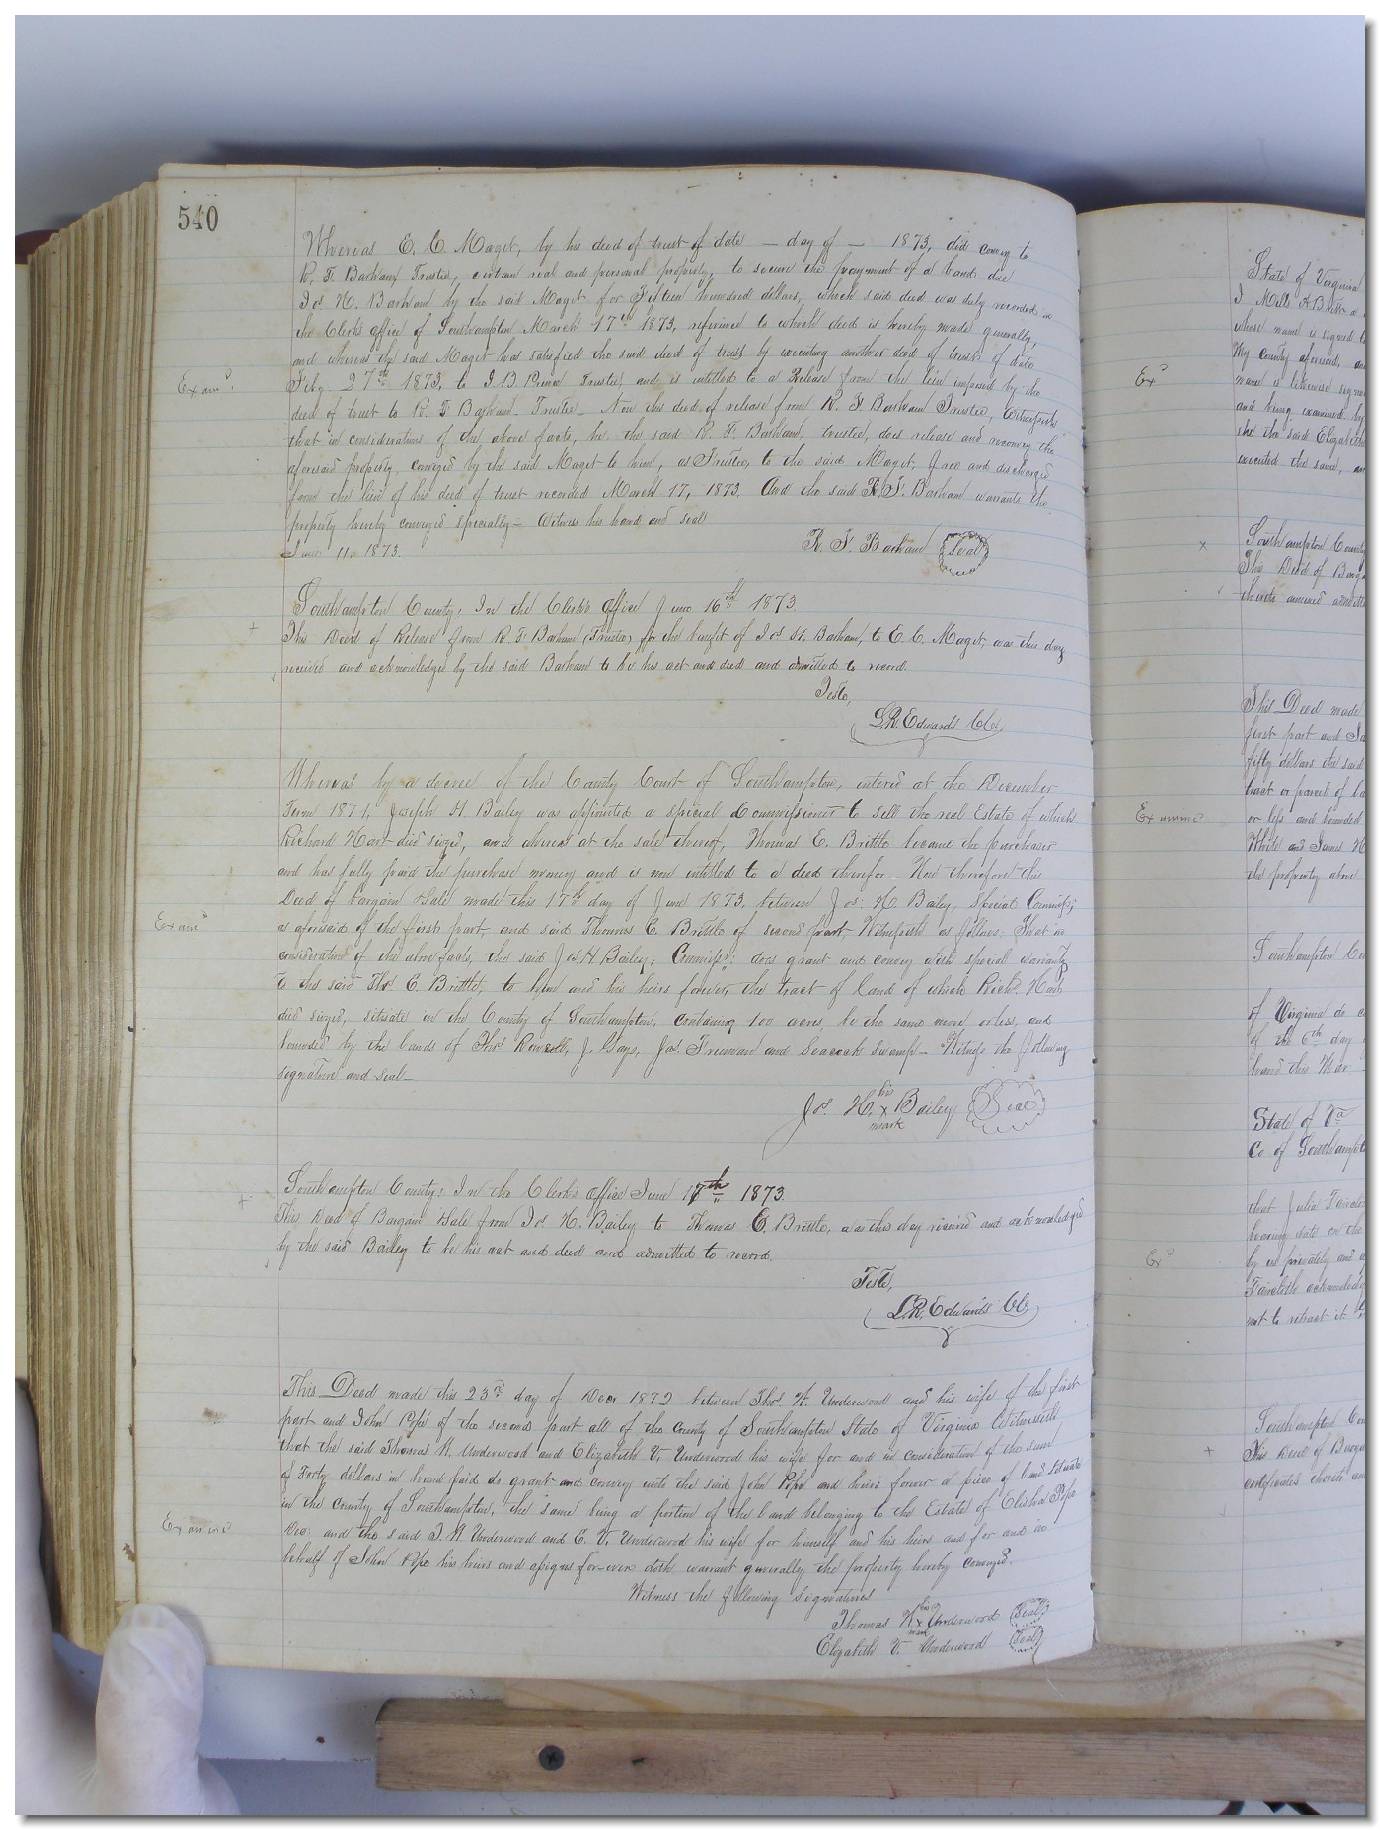 540
Whereas E. C. Maget, by his deed of trust of date — day of — 1873, did convey to
R. F. Barham, Trustee, certain real and personal property, to secure the payment of a bond due
Jos H. Barham by the said Maget for Fifteen hundred dollars, which said deed was duly recorded in
the Clerks office of Southampton March 17th 1873, reference to which deed is hereby made generally,
and whereas the said Maget has satisfied the said deed of trust by executing another deed of trust of date
Exam.d
Feby 27th 1873, to J. B. Prince Trustee, and is intitled to a Release from the lien imposed by the
deed of trust to R. F. Barham Trustee— Now this deed of release from R. F. Barham Trustee, Witnesseth
that in consideration of the above facts, he the said R. F. Barham, trustee, does release and reconvey the
aforesaid property, conveyed by the said Maget to him, as Trustee, to the said Maget, free and discharged
from the lien of his deed of trust recorded March 17, 1873. And the said R. F. Barham warrants the
property hereby conveyed specially— Witness his hand and seal
June 11 1873.
R. F. Barham Seal
Southampton County: In the Clerk's Office June 16th 1873
+ This Deed of Release from R. F. Barham (Trustee) for the benefit of Jos H. Barham, to E. C. Maget, was this day
received and acknowledged by the said Barham to be his act and deed and admitted to record.
Teste,
L. R. Edwards Clk.
Whereas by a decree of the County Court of Southampton, entered at the December
Term 1871, Joseph H. Bailey was appointed a special Commissioner to sell the real Estate of which
Richard Hart died seized, and whereas at the sale thereof, Thomas E. Brittle became the purchaser
and has fully paid the purchase money and is now intitled to a deed therefor. Now therefore this
Deed of bargain & sale made this 17th day of June 1873, between Jos: H. Bailey, special Commiss:
Exam.d
as aforesaid of the first part, and said Thomas E. Brittle of second part, Witnesseth as follows: That in
consideration of the above facts, the said Jos H Bailey, Commiss: does grant and convey with special warranty
to the said Thos E. Brittle, to him and his heirs forever, the tract of land of which Richd. Hart
died seized, situate in the County of Southampton, containing 100 acres, be the same more or less, and
bounded by the lands of Thos Rowell, J. Gays, Jas. Freeman and Seacock Swamp— Witness the following
signature and seal—
Jos. H. his x mark Bailey Seal
Southampton County: In the Clerk's Office June 17th 1873.
+ This Deed of Bargain & Sale from Jos H. Bailey to Thomas E. Brittle, was this day received and acknowledged
by the said Bailey to be his act and deed and admitted to record.
Teste,
L. R. Edwards Clk
This Deed made this 23rd day of Dec 1872 between Thos. W. Underwood and his wife of the first
part and John Pope of the second part all of the County of Southampton State of Virginia Witnesseth
that the said Thomas W. Underwood and Elizabeth V. Underwood his wife for and in consideration of the sum
of Forty dollars in hand paid do grant and convey unto the said John Pope and heirs forever a piece of land situate
in the County of Southampton, the same being a portion of the land belonging to the Estate of Elisha Pope
Examined
Dec: and the said T. W. Underwood and E. V. Underwood his wife for himself and his heirs and for and in
behalf of John Pope his heirs and assigns for-ever doth warrant generally the property hereby conveyed.
Witness the following signatures
Thomas W. his x mark Underwood Seal
Elizabeth V. Underwood Seal
State of Virginia
whose name is signed
My county aforesaid, and
Ex.d
name is likewise
and being examined by
she the said Elizabeth
executed the same, an
x Southampton County
This Deed of Barg
thereto annexed
This Deed made
first part and Ja
fifty dollars the said
tract or parcel of la
Examine
or less and bounded
White and James H
the property above
Southampton Co
of Virginia do c
of the 6th day
hand this Mar
State of Va
Co of Southampt
that Julia Faircloth
bearing date on the
Ex.d
by us privately and
Faircloth acknowledg
not to retract it
Southampton Co
+ This Deed of Barga
certificates thereto an